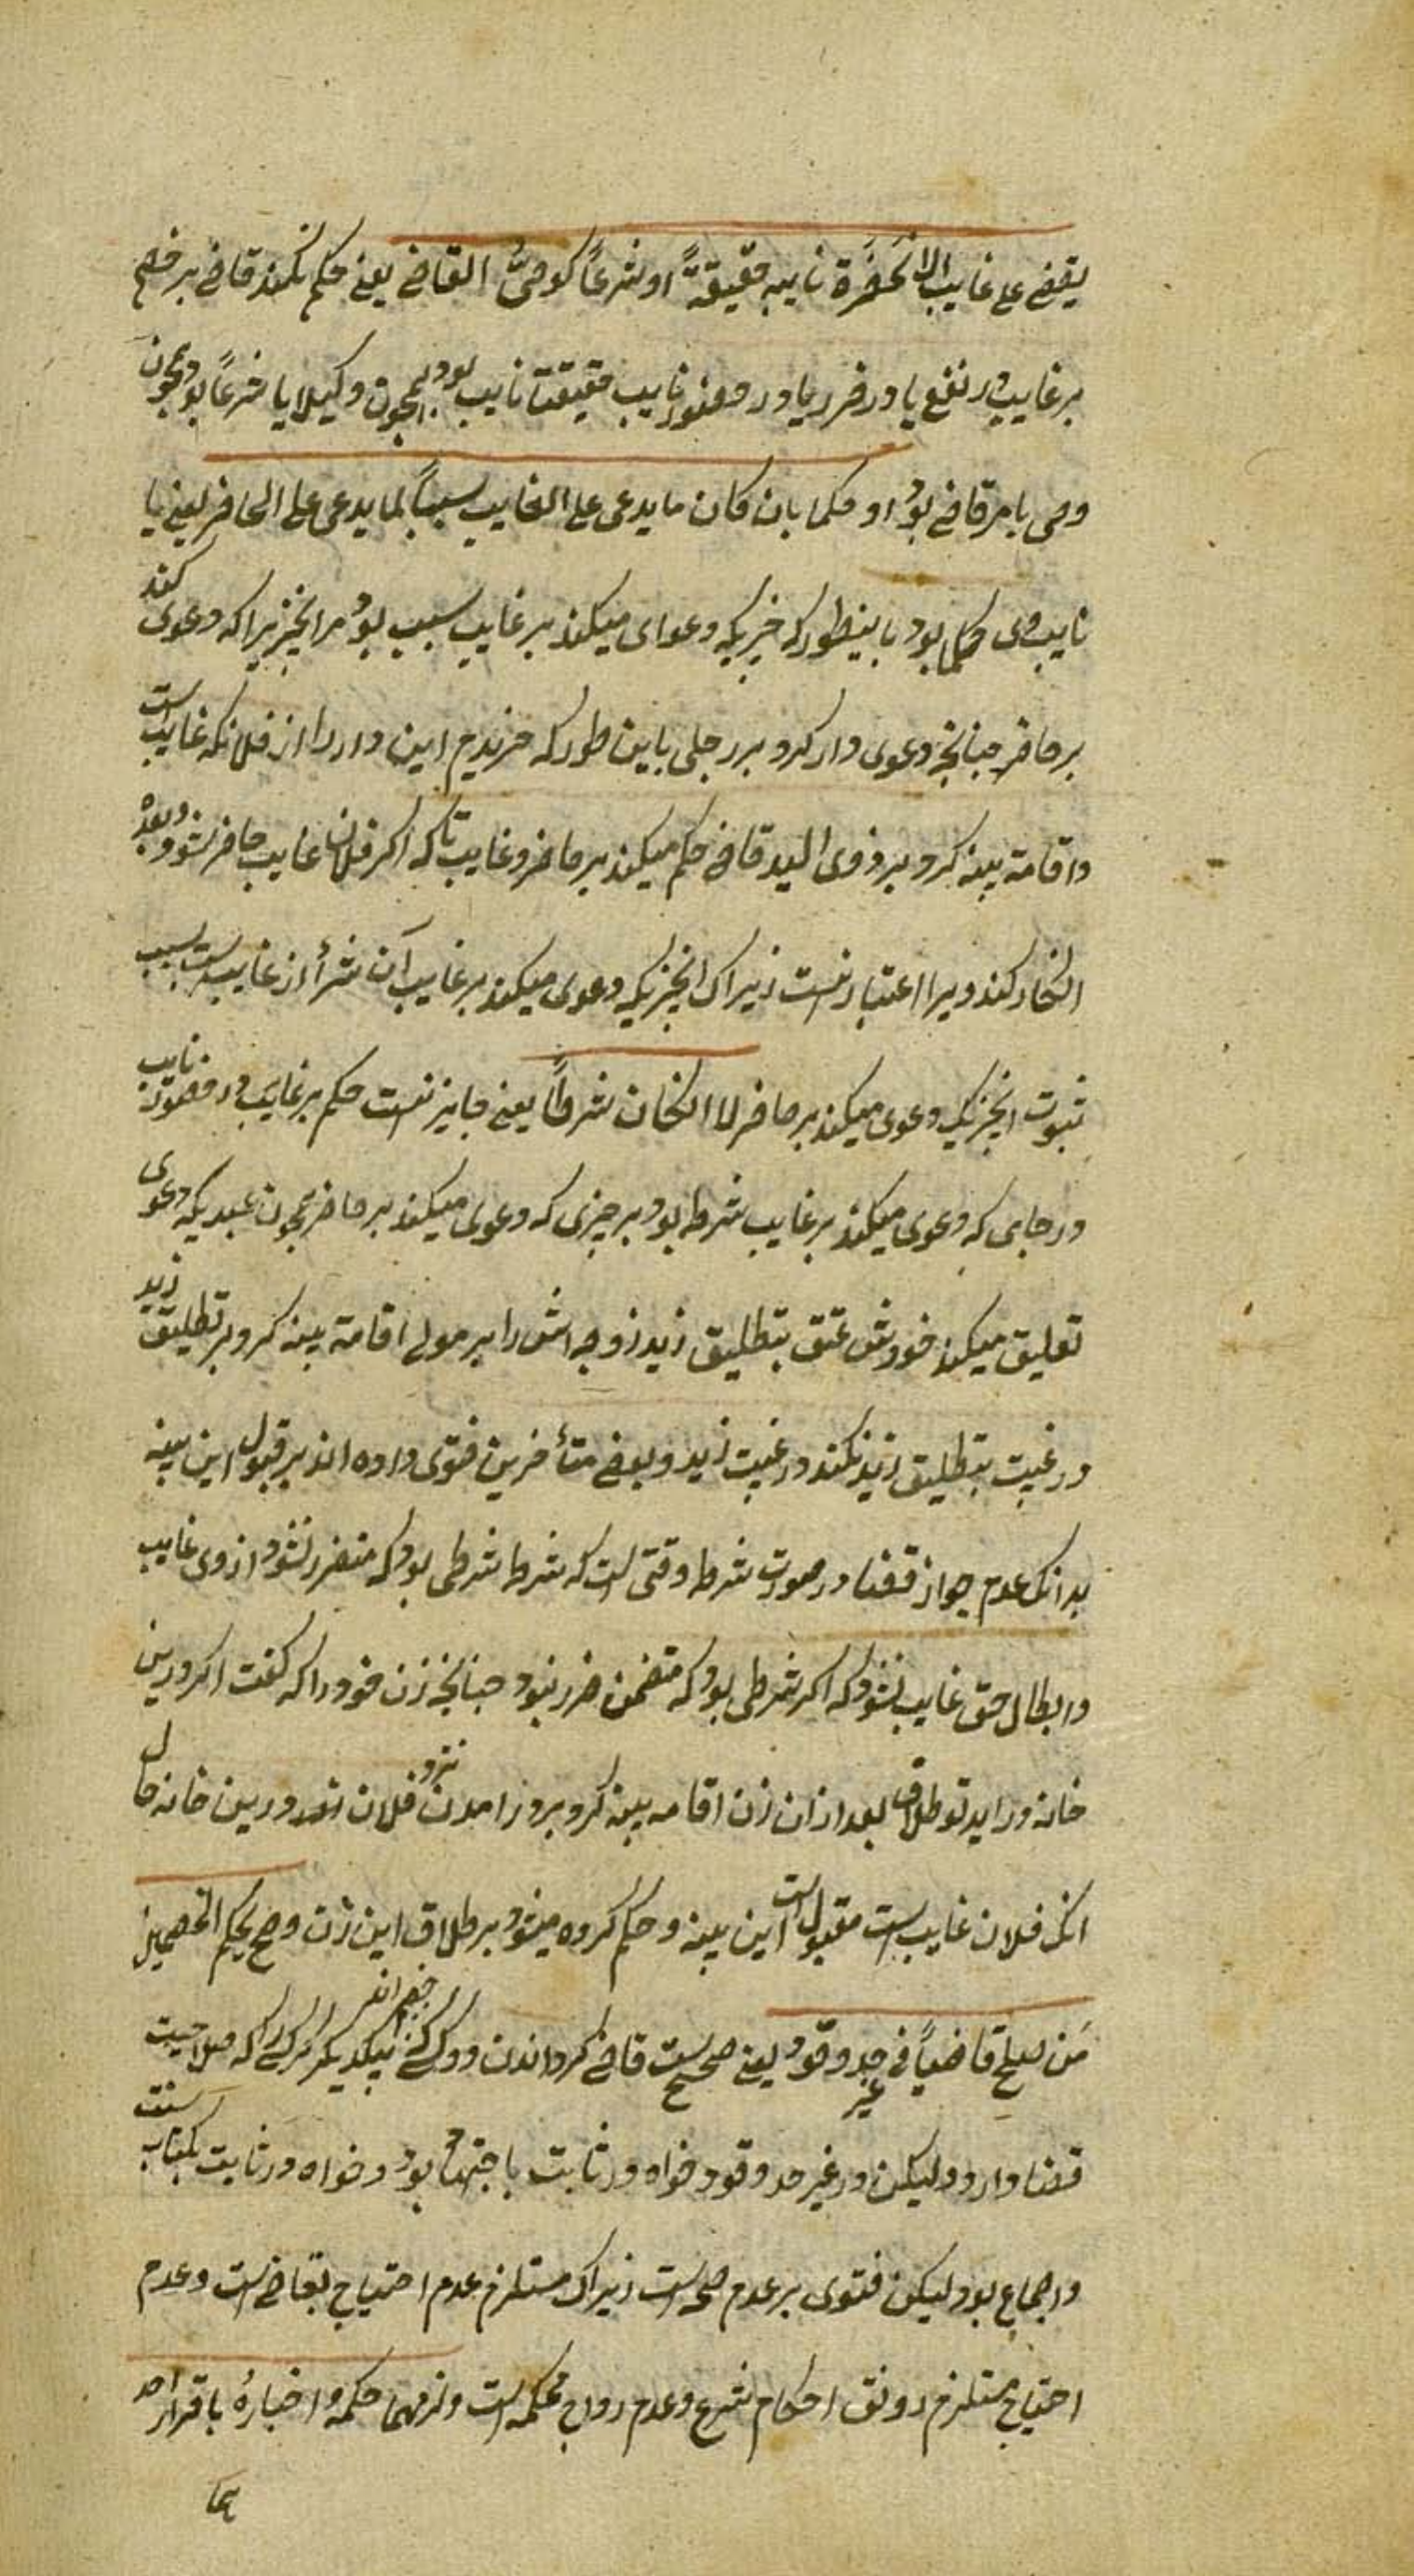 یقضی علی غایب الا بحضرة نایبه حقیقةً او شرعاً کوصیّ القاضی یعنی حکم نکند قاضی بر خصم
بر غایب در نفع یا در ضرر یا در حضور نایب حقیقتا نایب بود همچون وکیل یا شرعاً بود همچون
وصی یا مر قاضی بود او حکما بان کان ما یدعی علی الغایب سبباً لما یدعی علی الحاضر یعنی یا
نایب وی حکما بود باینطور که چیزیکه دعوای میکند بر غایب سبب بود مر انچیزیرا که دعوی کند
بر حاضر چنانچه دعوی دار کرد بر رجلی باین طور که خریدم این دار را از فلانکه غایب است
و اقامة بینه کرد بر ذوی الید قاضی حکم میکند بر حاضر و غایب تا که اگر فلان غایب حاضر شود و بعده
انکار کند ویرا اعتبار نیست زیراک انچیزیکه دعوی میکند بر غایب آن شرأ از غایب است سبب
ثبوت انچیزیکه دعوی میکند بر حاضر لا ان کان شرطاً یعنی جایز نیست حکم بر غایب در حضور نایب
در جایی که دعوی میکند بر غایب شرط بود بر چیزی که دعوی میکند بر حاضر همچون عبدیکه دعوی
تعلیق میکند خودش عتق بتطلیق زید زوجه اش را بر مولی اقامة بینه کرد بر تطلیق زید
در غیبت بتطلیق زید نکند در غیبت زید و بعضی متأخرین فتوی داده اند بر قبول این بینه
بدانک عدم جواز قضا در صورت شرط وقتی است که شرط شرطی بود که متضرر نشود از وی غایب
و ابطال حق غایب نشود که اگر شرطی بود که متضمن ضرر نبود چنانچه زن خود را که گفت اگر درین
خانه در اید تو طلاق بعد از ان زن اقامه بینه کرد بر در امدن نزد فلان شد درین خانه حال
انک فلان غایب است مقبول است این بینه و حکم کرده میشود بر طلاق این زن وصح یحکم الخصمین
مَن صلح قاضیاً فی غیر حد و قود یعنی صحیح است قاضی گردانیدن دو کس که خصم اند بیکدیگر مر کسی را که صلاحیت
قضا دارد ولیکن در غیر حد و قود خواه در ثابت باجتهاد بود و خواه در ثابت بکتاب سنت
و اجماع بود لیکن فتوی بر عدم صحه است زیراک مستلزم عدم احتیاج بقاضی است و عدم
احتیاج مستلزم رونق احکام شرع و عدم رواج محکمه است ولزمهما حکمه و اخباره باقرار احد
هما